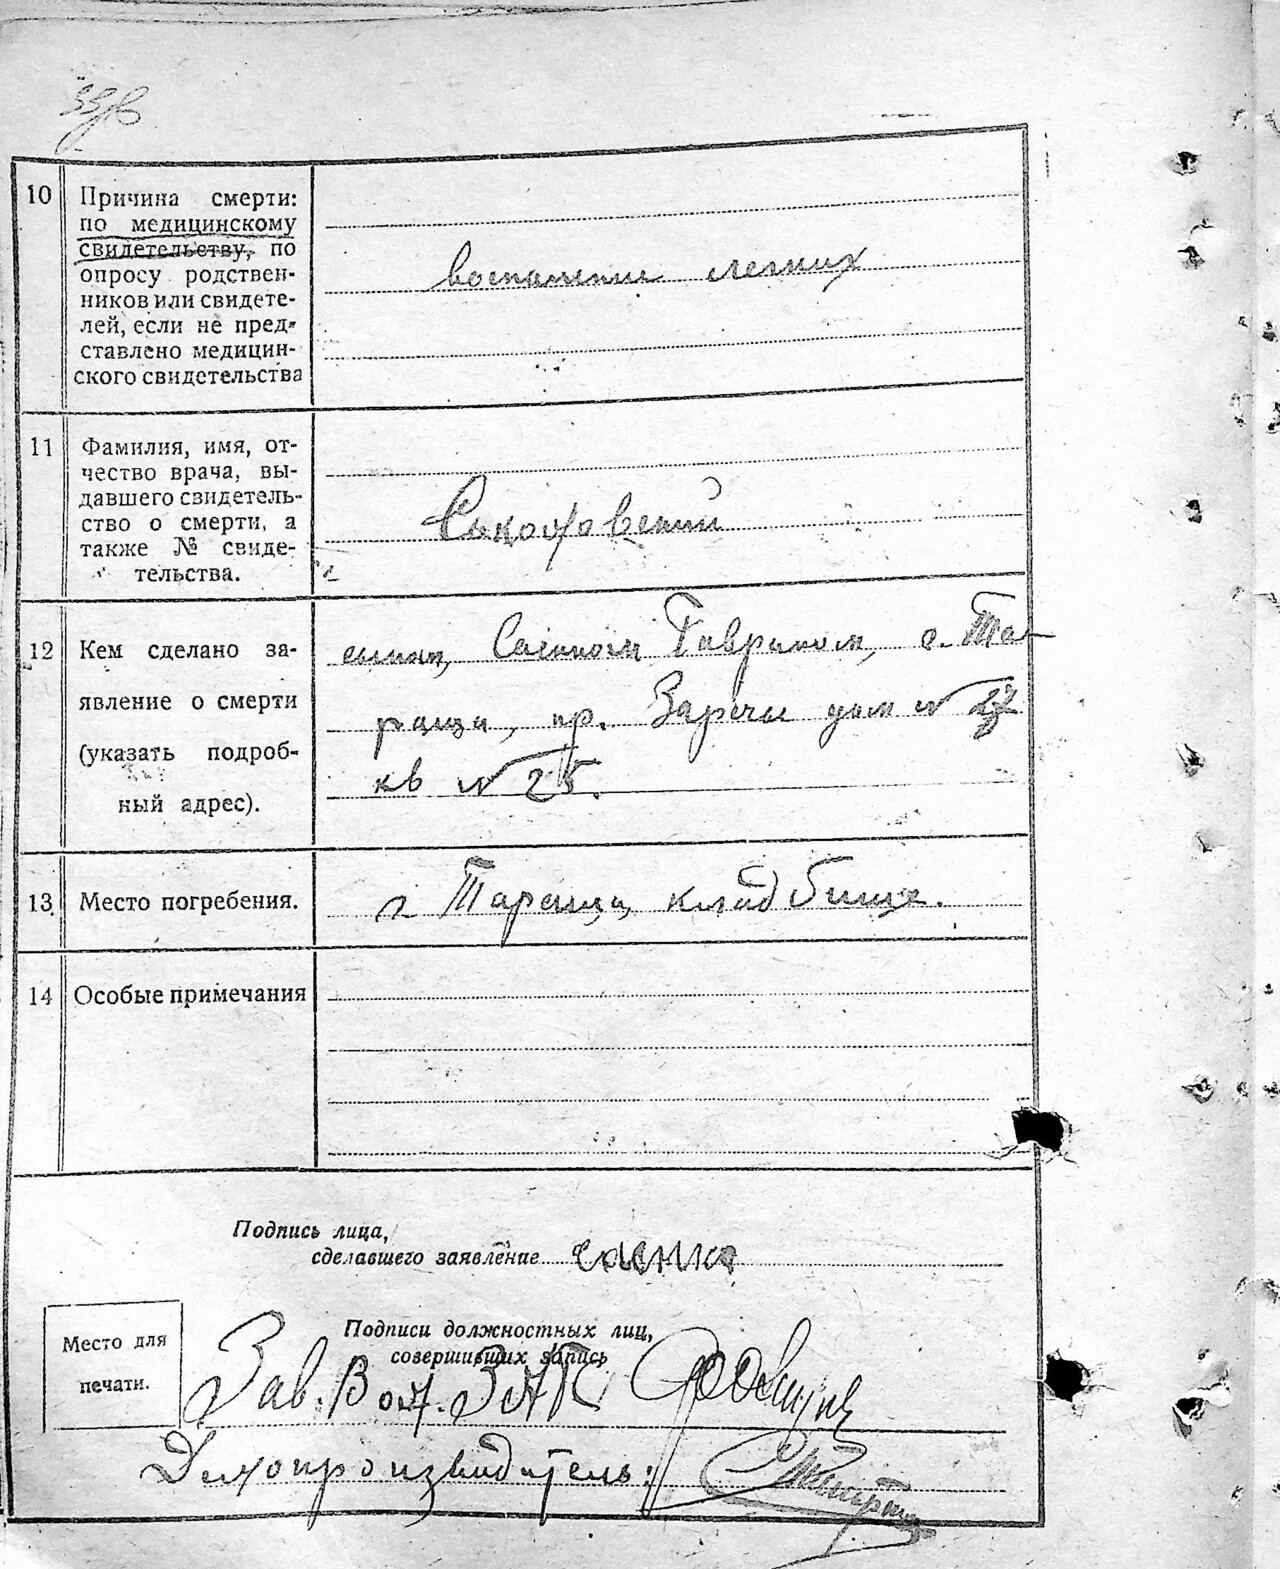 10 Причина смерти:
по медицинскому
свидетельству, по
опросу родствен-
ников или свидете-
лей, если не пред-
ставлено медицин-
ского свидетельства
воспаление легких
11 Фамилия, имя, от-
чество врача, вы-
давшего свидетель-
ство о смерти, а
также № свиде-
тельства.
Соколовский
12 Кем сделано за-
явление о смерти
(указать подроб-
ный адрес).
сыном, Саенком Гаврилом, г. Та-
раща, пр. Заречье дом №
кв № 25.
13 Место погребения.
г Тараща, кладбище.
14 Особые примечания
Подпись лица,
сделавшего заявление саенко
Место для
печати.
Подписи должностных лиц,
совершивших запись
Зав. Вол. ЗАГС
Делопроизводитель: